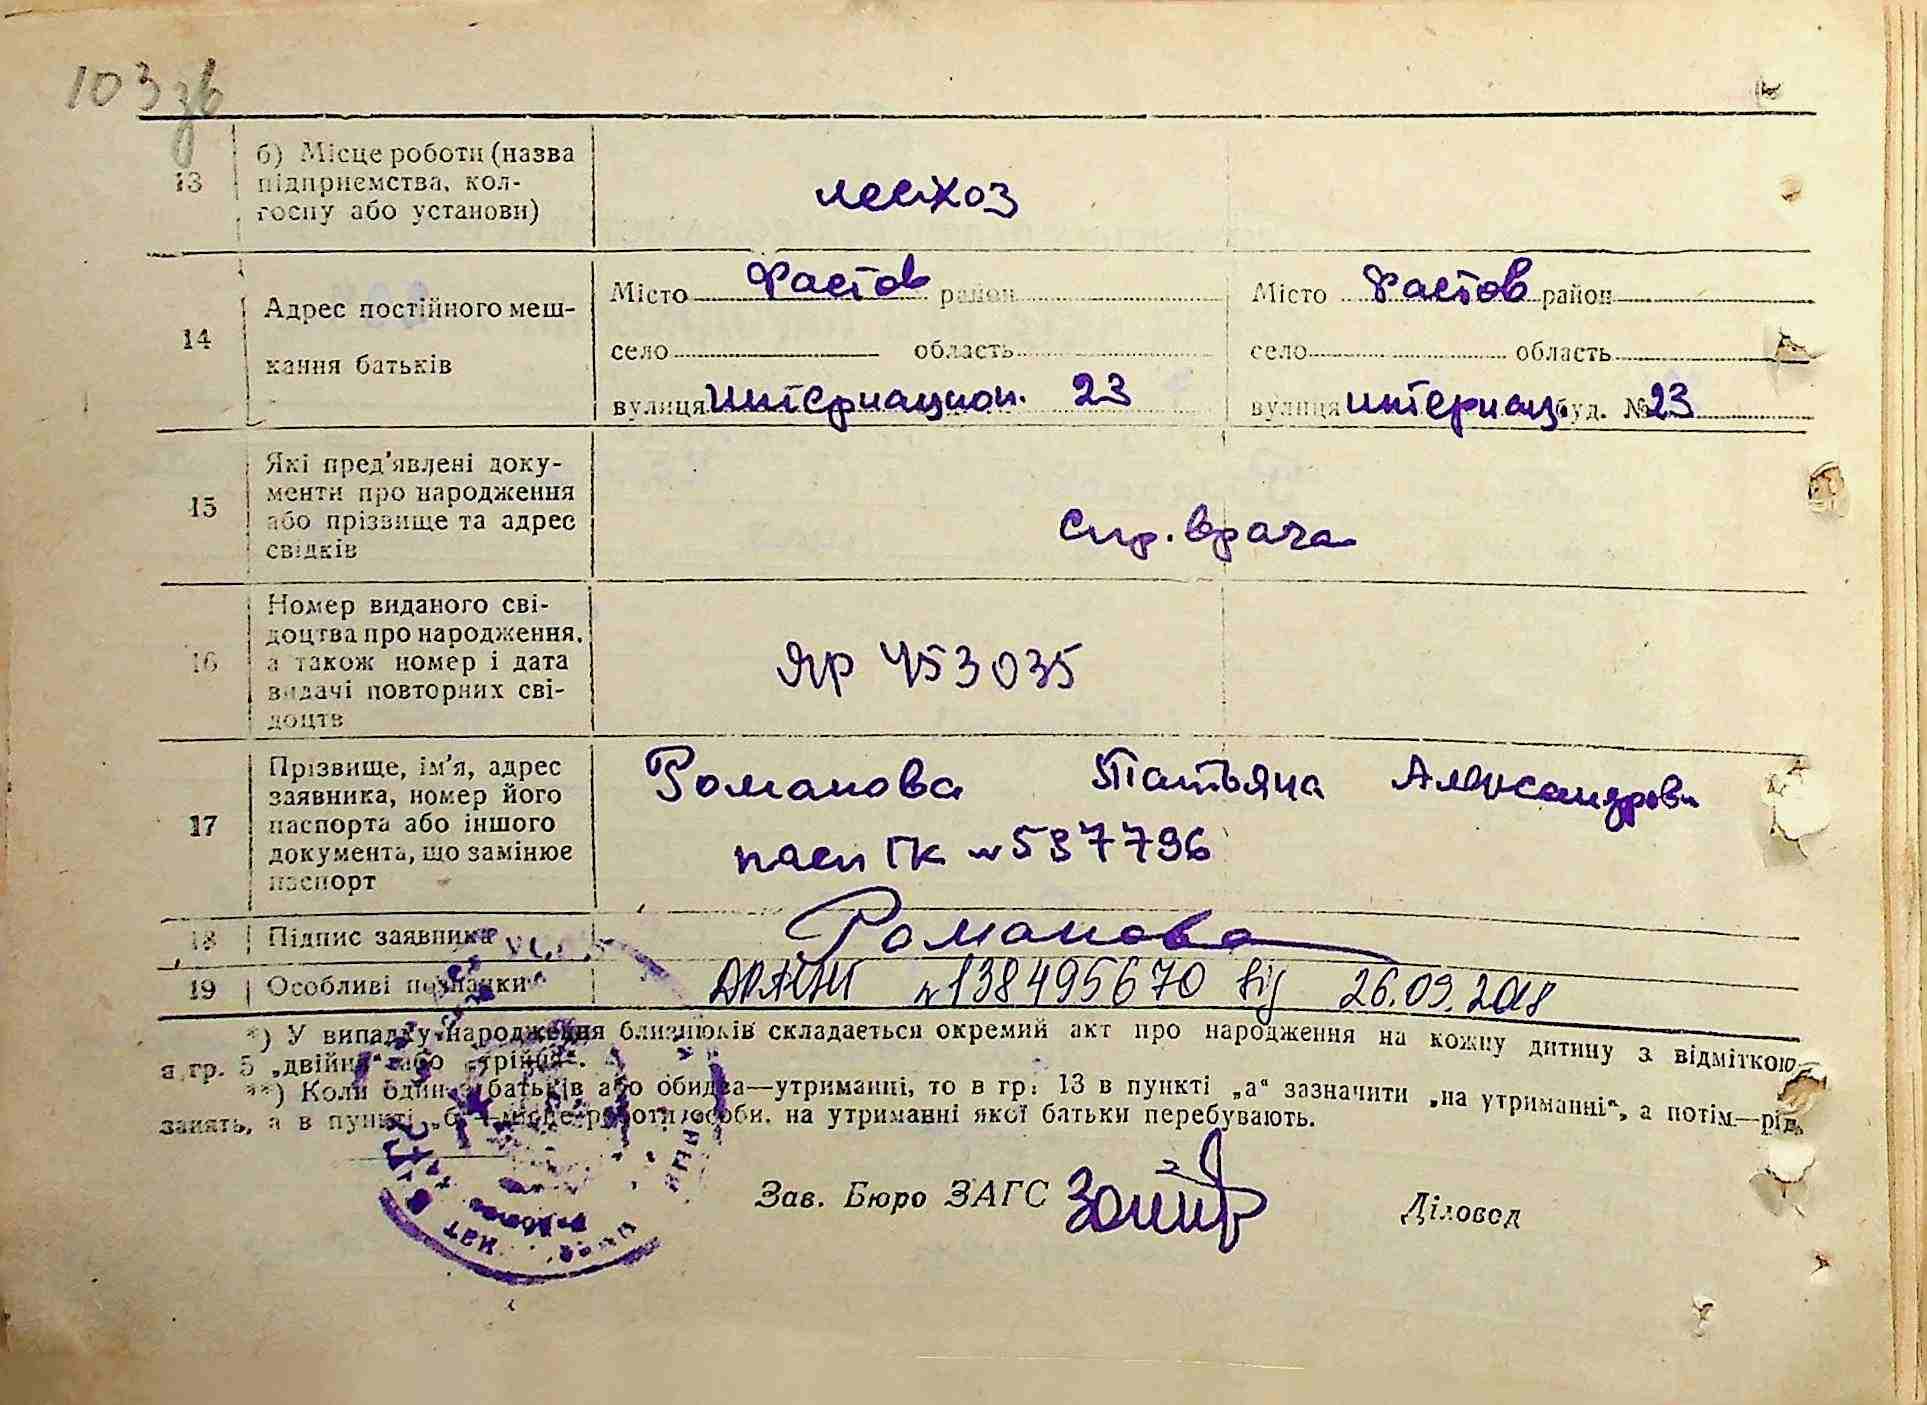 103 зв
13 б) Місце роботи (назва
підприємства, кол-
госпу або установи)
лесхоз
14 Адрес постійного меш-
кання батьків
Місто Фастов район Місто Фастов район
село область село область
вулиця Интернацион. 23 вулиця интернац. буд. № 23
15 Які пред'явлені доку-
менти про народження
або прізвище та адрес
свідків
Спр. врача
16 Номер виданого сві-
доцтва про народження,
а також номер і дата
видачі повторних сві-
доцтв
ЯР 453035
17 Прізвище, ім'я, адрес
заявника, номер його
паспорта або іншого
документа, що замінює
паспорт
Романова Татьяна Александровн
пасп ГК № 537796
18 Підпис заявника Романова
19 Особливі позначки № 138495670 від 26.09.2018
*) У випадку народження близнюків складається окремий акт про народження на кожну дитину з відміткою
в гр. 5 „двійня“ або „трійня“.
**) Коли один з батьків або обидва—утриманні, то в гр. 13 в пункті „а“ зазначити „на утриманні“, а потім—рід
занять, а в пункті „б“—місце роботи особи, на утриманні якої батьки перебувають.
Зав. Бюро ЗАГС Діловод